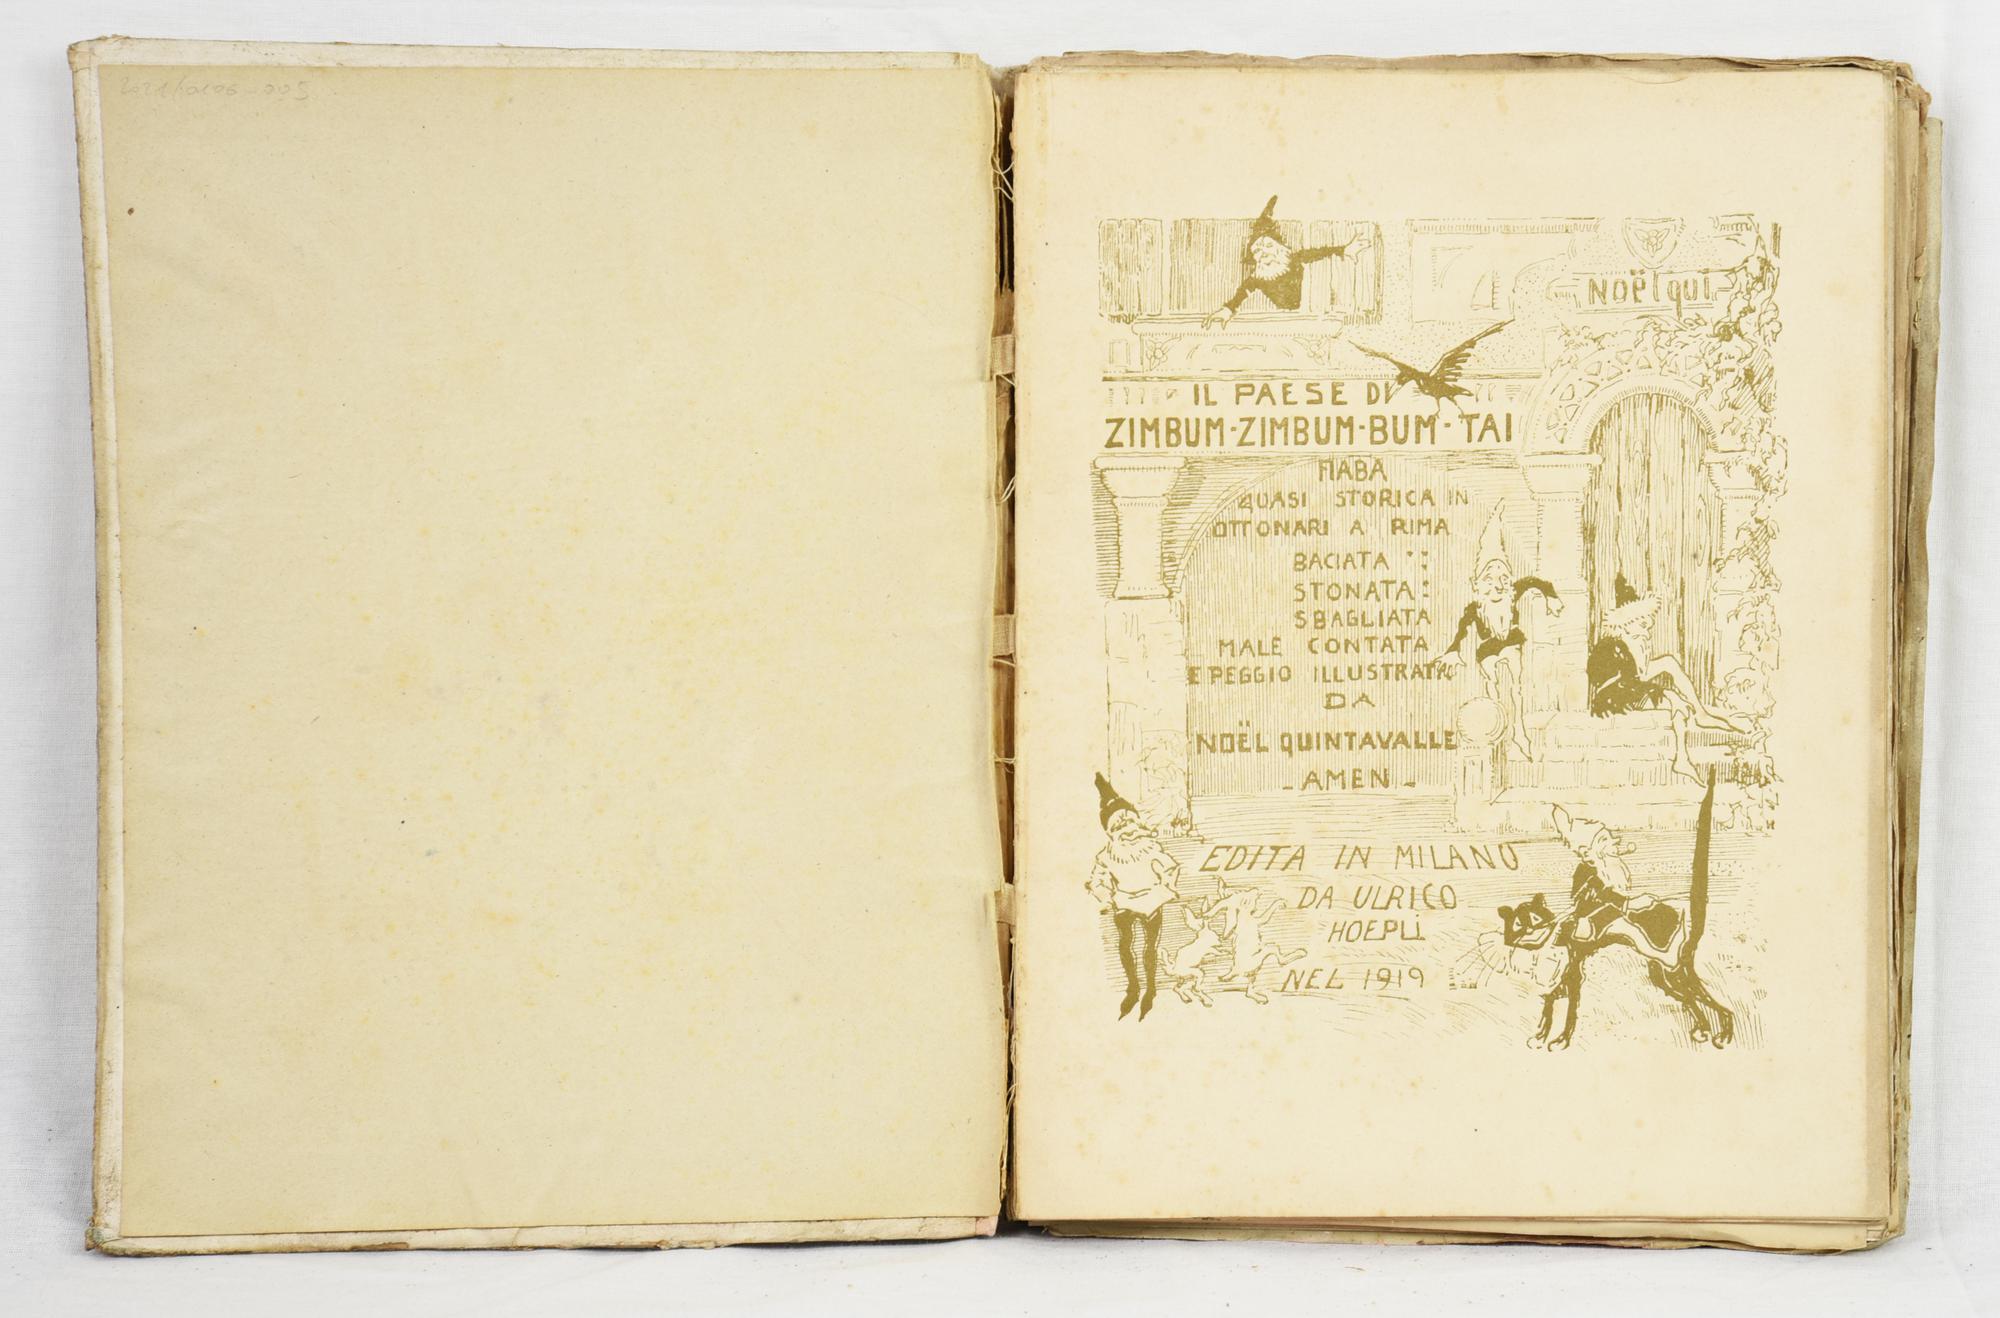 Noël qui
IL PAESE DI
ZIMBUM-ZIMBUM-BUM-TAI
FIABA
QUASI STORICA IN
OTTONARI A RIMA
BACIATA
STONATA
SBAGLIATA
MALE CONTATA
E PEGGIO ILLUSTRATA
DA
NOËL QUINTAVALLE
- AMEN -
EDITA IN MILANO
DA ULRICO
HOEPLI
NEL 1919